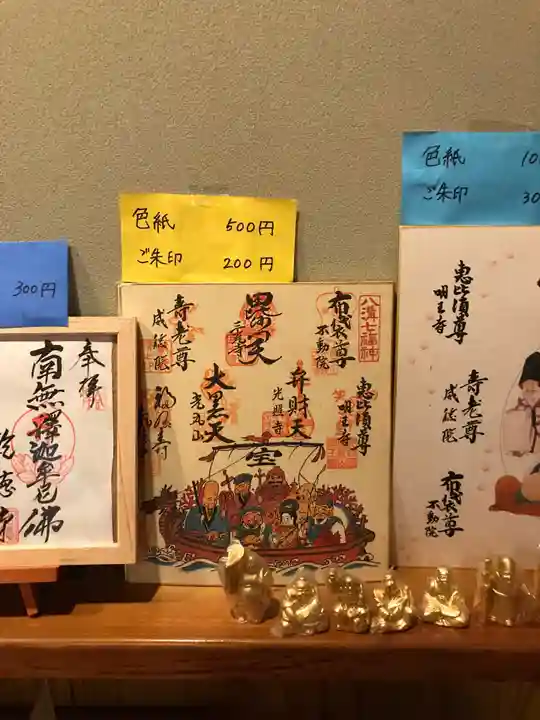 300円
奉拝
南無釋迦牟尼佛
色紙 500円
ご朱印 200円
八溝七福神
布袋尊
不動院
毘沙門天
寿老尊
成就院
恵比須尊
明王寺
弁財天
光照寺
大黒天
宝
色紙 10
ご朱印 30
恵比須尊
明王寺
寿老尊
成就院
布袋尊
不動院